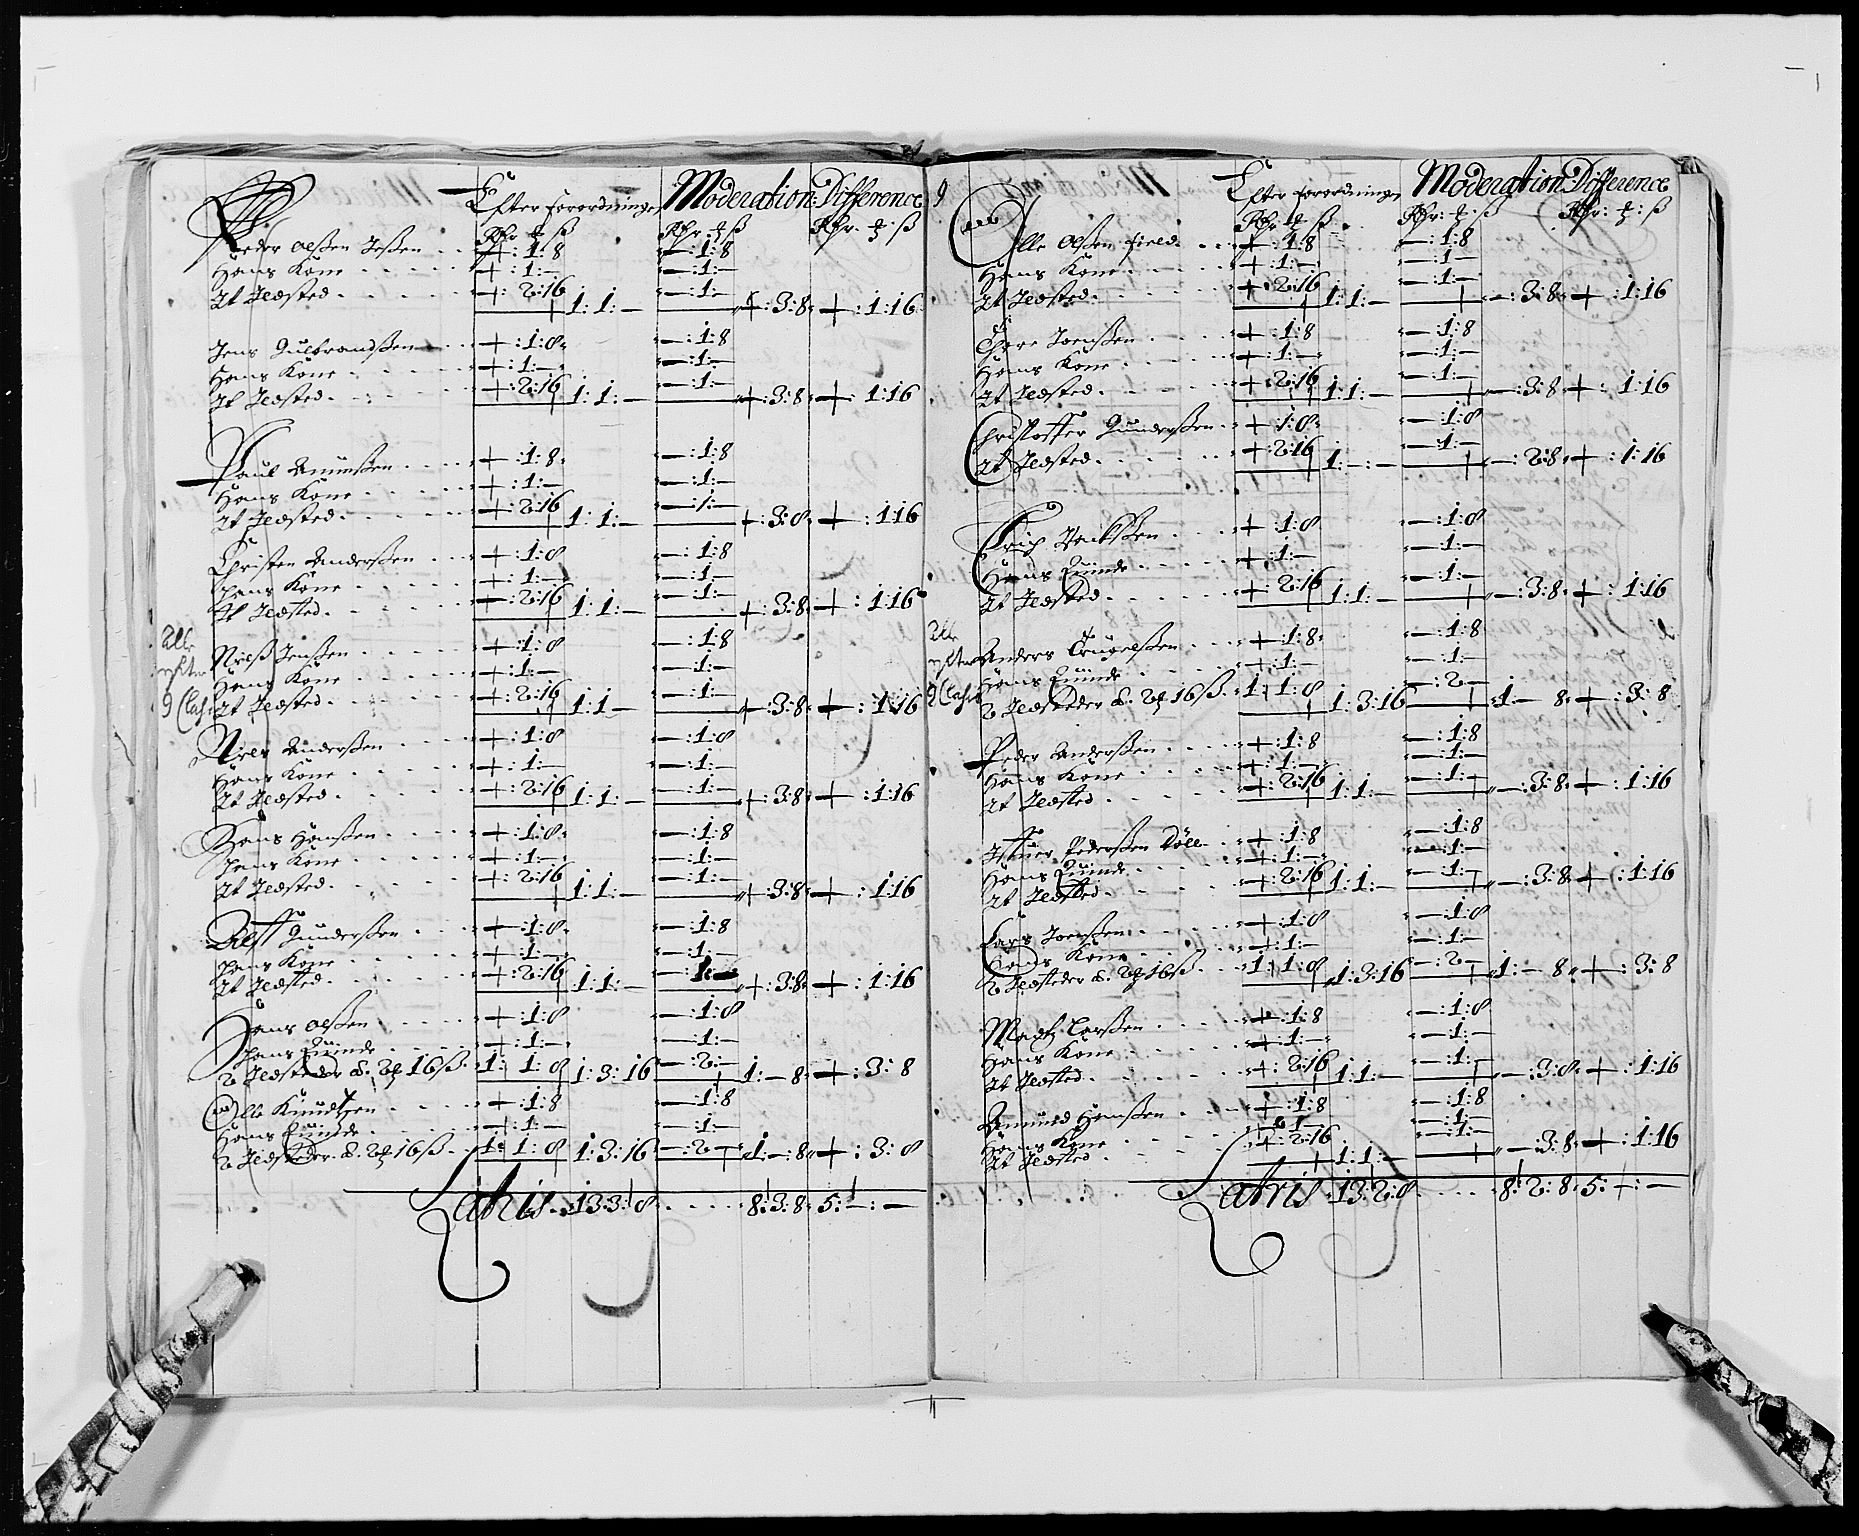 Efter Forordningen Moderation Difference
Rhr ß Rhr ß Rhr ß
Peder Olßen Jeßen +:1:8 —:1:8
Hans Kone +:1:— —:1:—
It Ildsted +:2:16 1:1:— —:1:— +:3:8 +:1:16
Jens Gulbrandßen +:1:8 —:1:8
Hans Kone +:1:— —:1:—
It Ildsted +:2:16 1:1:— —:1:— +:3:8 +:1:16
Paul Amunßen +:1:8 —:1:8
Hans Kone +:1:— —:1:—
It Ildsted +:2:16 1:1:— —:1:— +:3:8 +:1:16
Christen Anderßen +:1:8 —:1:8
Hans Kone +:1:— —:1:—
It Ildsted +:2:16 1:1:— —:1:— +:3:8 +:1:16
Alle efter 9 Clas:
Nielß Jenßen +:1:8 —:1:8
Hans Kone +:1:— —:1:—
It Ildsted +:2:16 1:1:— —:1:— +:3:8 +:1:16
Niels Anderßen +:1:8 —:1:8
Hans Kone +:1:— —:1:—
It Ildsted +:2:16 1:1:— —:1:— +:3:8 +:1:16
Hans Hanßen +:1:8 —:1:8
Hans Kone +:1:— —:1:—
It Ildsted +:2:16 1:1:— —:1:— +:3:8 +:1:16
Gunderßen +:1:8 —:1:8
Hans Kone +:1:— —:1:—
It Ildsted +:2:16 1:1:— —:1:— +:3:8 +:1:16
Hans Olßen +:1:8 —:1:8
Hans Quinde +:1:— —:1:—
2 Ildsteder á 2 16ß 1:1:8 1:3:16 —:2:— 1:—8 +:3:8
Olle Knudtzen +:1:8 —:1:8
Hans Quinde +:1:— —:1:—
2 Ildsteder á 2 16ß 1:1:8 1:3:16 —:2:— 1:—:8 +:3:8
Latris 13:3:8 8:3:8 5:—:—
9
Efter Forordningen Moderation Difference
Rhr ß Rhr: :ß Rhr: :ß
Olle Olßen Field +:1:8 —:1:8
Hans Kone +:1:— —:1:—
It Ildsted +:2:16 1:1:— —:1:— —:3:8 +:1:16
Thore Joenßen +:1:8 —:1:8
Hans Kone +:1:— —:1:—
It Ildsted +:2:16 1:1:— —:1:— —:3:8 +:1:16
Christoffer Gunderßen +:1:8 —:1:8
It Ildsted +:2:16 1:—:— —:1:— —:2:8 +:1:16
Erich +:1:8 —:1:8
Hans Quinde +:1:— —:1:—
It Ildsted +:2:16 1:1:— —:1:— —:3:8 +:1:16
Alle efter 9 Clas:
Anders Trugelßen +:1:8 —:1:8
Hans Quinde +:1:— —:1:—
2 Ildsteder á 2 16ß 1:1:8 1:3:16 —:2:— 1:—8 +:3:8
Peder Anderßen +:1:8 —:1:8
Hans Kone +:1:— —:1:—
It Ildsted +:2:16 1:1:— —:1:— —:3:8 +:1:16
Pederßen Döll +:1:8 —:1:8
Hans Quinde +:1:— —:1:—
It Ildsted +:2:16 1:1:— —:1:— —:3:8 +:1:16
Lars Joenßen +:1:8 —:1:8
Hans Kone +:1:— —:1:—
2 Ildsteder á 2 16ß 1:1:8 1:3:16 —:2:— 1:—8 +:3:8
Madtz Larßen +:1:8 —:1:8
Hans Kone +:1:— —:1:—
It Ildsted +:2:16 1:1:— —:1:— —:3:8 +:1:16
Amund Hanßen +:1:8 —:1:8
Hans Kone +:1:— —:1:—
It Ildsted +:2:16 1:1:— —:1:— —:3:8 +:1:16
Latris 13:2:8 8:2:8 5:+:—